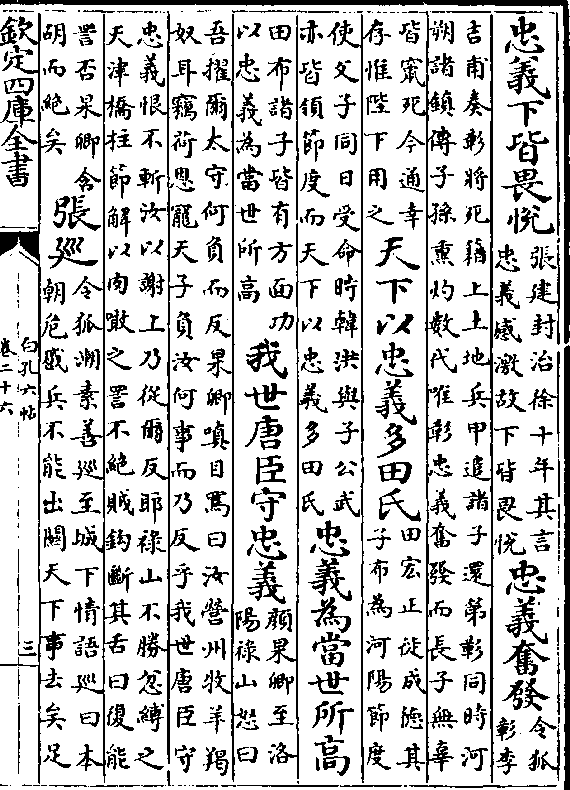 忠義下皆畏悅
張建封治徐十年其言
忠義感激故下皆畏悅
忠義奮發
令狐
彰李
吉甫奏彰將死籍上土地兵甲遣諸子還第彰同時河
朔諸鎮傳子孫熏灼數代唯彰忠義奮發而長子無辜
皆竄死今通幸
存惟陛下用之
天下以忠義多田氏
田宏正徙成德其
子布為河陽節度
使父子同日受命時韓洪與子公武
亦皆領節度而天下以忠義多田氏
忠義為當世所高
田布諸子皆有方面功
以忠義為當世所高
我世唐臣守忠義
顏杲卿至洛
陽祿山怒曰
吾擢爾太守何負而反杲卿嗔目罵曰汝營州牧羊羯
奴耳竊荷恩寵天子負汝何事而乃反乎我世唐臣守
忠義恨不斬汝以謝上乃從爾反耶祿山不勝忿縛之
天津橋柱節解以肉啖之詈不絕賊鉤斷其舌曰復能
詈否杲卿含
胡而絕矣
張巡
令狐潮素善巡至城下情語巡曰本
朝危蹙兵不能出關天下事去矣足
欽定四庫全書
白孔六帖
卷二十六
三